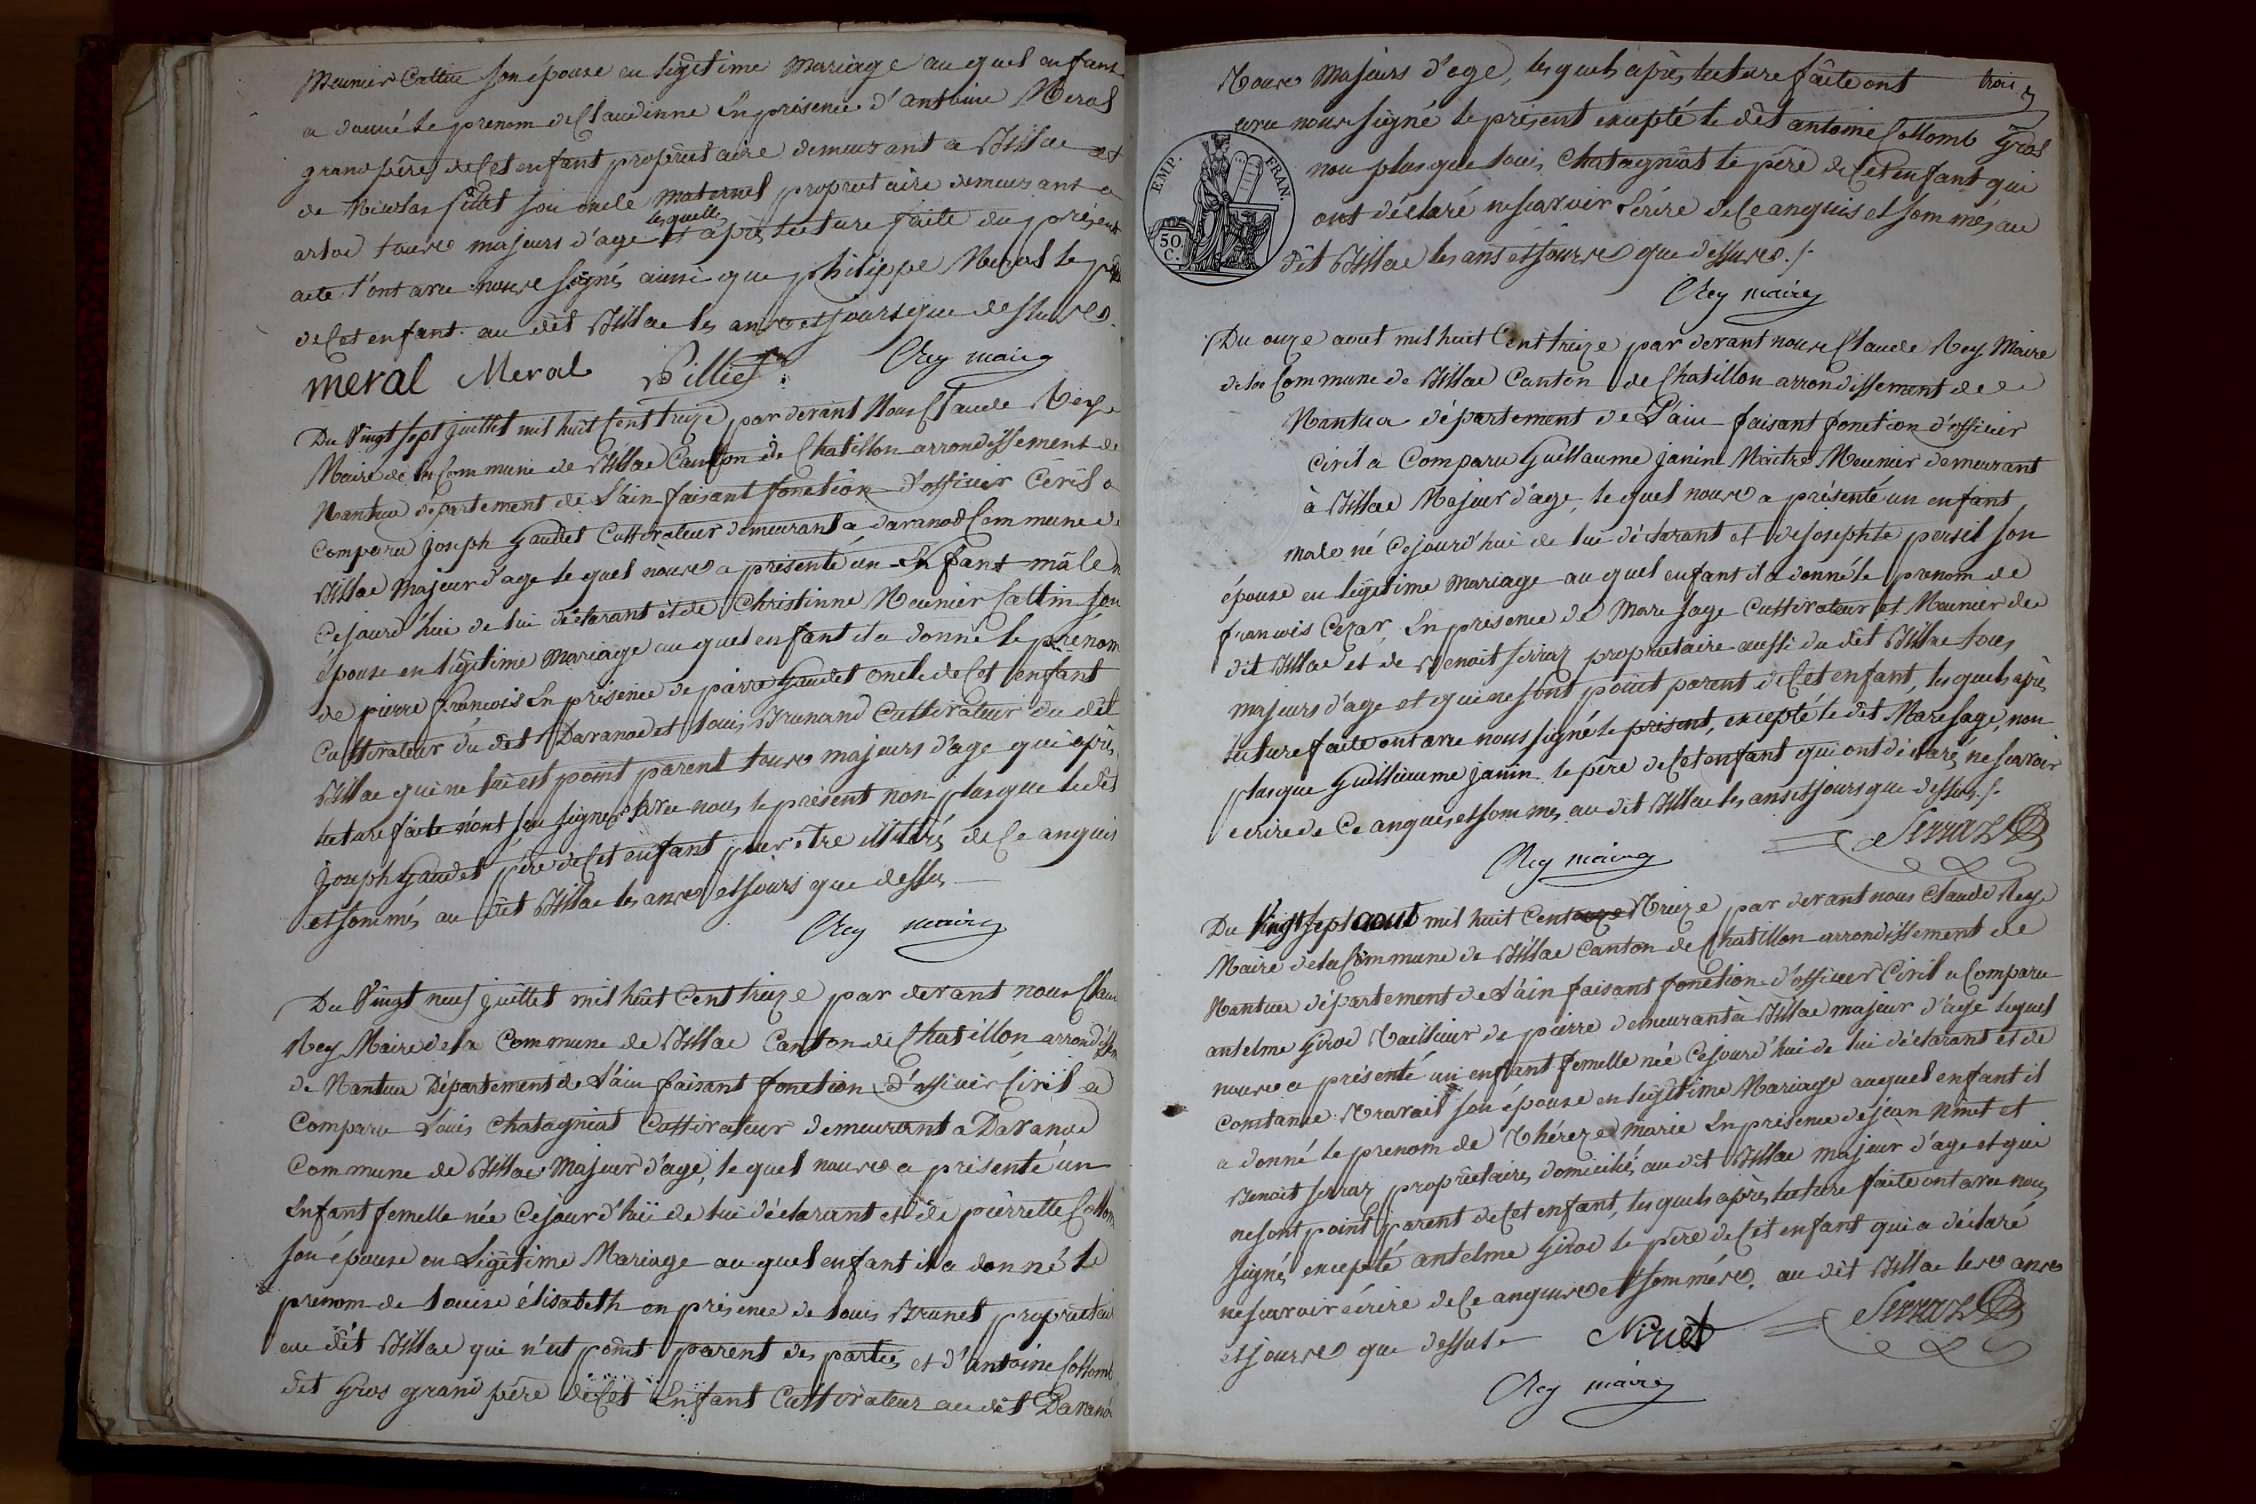 Meunier Cattin son épouse en légitime mariage au quel enfant
a donné le prenom de Claudinne En présence d'antoine Meral
grand père de Cet enfant propriétaire demeurant a Billiac et
de Nicolas son oncle maternel propriétaire demeurant a
arlod tous majeurs d'age lesquelles après lecture faite du présent
acte l'ont avec nous signés ainsi que philippe Meral le père
de Cet enfant. au dit Billiac les ans et jours que dessus.
meral Meral Pilliet Rey maire
Du Vingt sept juillet mil huit Cent treize par devant Nous Claude Rey
Maire de la Commune de Billiac Canton de Chatillon arrondissement de
Nantua département de L'ain faisant fonction d'officier Civil a
Comparu joseph Gaudet Cultivateur demeurant a davanod Commune de
Billiac Majeur d'age le quel nous a présenté un Enfant mâle n
Cejourd'hui de lui déclarant et de Christinne Meunier Cattin son
épouse en légitime Mariage au quel enfant il a donné le prénom
de pierre francois En présence de pierre Gaudet oncle de Cet enfant
Cultivateur du dit Davanod et louis Brunand Cultivateur du dit
Billiac qui ne lui est point parent tous majeurs d'age qui après
lecture faite n'ont seu signer avec nous le présent non plus que le dit
Joseph Gaudet père de Cet enfant pour être illitéré de Ce anquis
et sommés au dit Billiac les ans et jours que dessus
Rey maire
Du Vingt neuf juillet mil huit Cent treize par devant nous Clau
Rey Maire de la Commune de Billiac Canton de Chatillon arrondissem
de Nantua Département de L'ain faisant fonction d'officier Civil a
Comparu Louis Chatagniat Cultivateur demeurant a Davanod
Commune de Billiac Majeur d'age, le quel nous a présenté un
Enfant femelle née Cejourd'hui de lui déclarant et de pierrette Collom
son épouse en Légitime Mariage au quel enfant il a donné le
prenom de louise élisabeth en présence de louis Brunet propriétair
au dit Billiac qui n'est point parent des parties et d'antoine Collomb
dit Gros grand père de Cet Enfant Cultivateur au dit Davanod
Tous Majeurs d'age, les quels après lecture faite ont trois
avec nous signé le présent excepté le dit antoine Collomb Gros
non plus que louis Chatagniat le père de Cet enfant qui
ont déclaré ne scavoir Ecrire de Ce anquis et sommés au
dit Billiac les ans et jours que dessus ./.
EMP. FRAN.
50 C.
Rey maire
Du onze aout mil huit Cent treize par devant nous Claude Rey Maire
de la Commune de Billiac Canton de Chatillon arrondissement de
Nantua département de L'ain faisant fonction d'officier
Civil a Comparu Guillaume janin Maitre Meunier demeurant
à Billiac Majeur d'age, le quel nous a présenté un enfant
male né Cejourd'hui de lui déclarant et de josephte persil son
épouse en légitime mariage au quel enfant il a donné le prenom de
francois Cezar, En présence de Marc sage Cultivateur et Meunier de
dit Billiac et de Benoit serraz propriétaire aussi du dit Billiac tous
majeurs d'age et qui ne sont point parent de Cet enfant, les quels après
lecture faite ont avec nous signé le présent, excepté le dit Marc sage, non
plus que Guillaume janin le père de Cet enfant qui ont déclaré ne scavoir
ecrire de Ce anquis et sommés au dit Billiac les ans et jours que dessus ./.
Rey maire Serraz
Du Vingt sept aout mil huit Cent Treize par devant nous Claude Rey
Maire de la Commune de Billiac Canton de Chatillon arrondissement de
Nantua département de L'ain faisant fonction d'officier Civil a Comparu
antelme Girod Tailleur de pierre demeurant à Billiac majeur d'age lequel
nous a présenté un enfant femelle née Cejourd'hui de lui déclarant et de
Constance Travail son épouse en légitime Mariage auquel enfant il
a donné le prenom de Thérèze Marie En présence de jean Niuet et
Benoit serraz propriétaires domiciliés au dit Billiac majeur d'age et qui
ne sont point parent de Cet enfant, les quels après lecture faite ont avec nous
signé, excepté antelme Girod le père de Cet enfant qui a déclaré
ne scavoir écrire de Ce anquis et sommés, au dit Billiac les ans
et jours que dessus Niuet Serraz
Rey maire